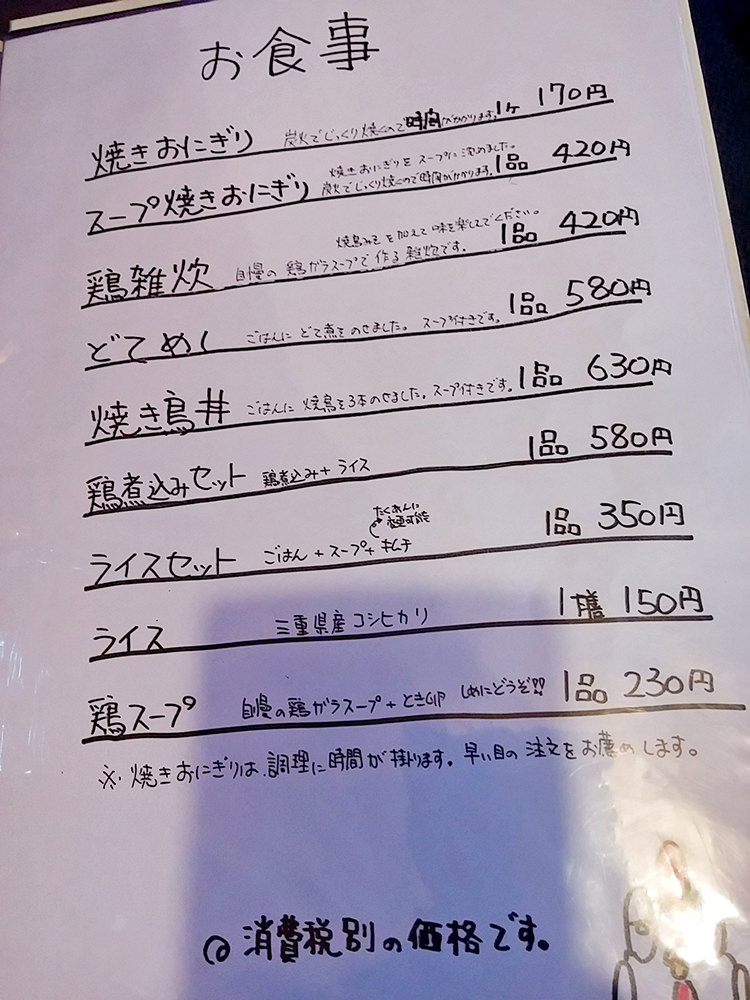 お食事
焼きおにぎり 炭火でじっくり焼くので時間がかかります。1ヶ 170円
焼きおにぎりをスープに沈めました。
スープ焼きおにぎり 炭火でじっくり焼くので時間がかかります。1品 420円
焼鳥みそを加えて味を楽しんでください。
鶏雑炊 自慢の鶏ガラスープで作る雑炊です。 1品 420円
どてめし ごはんにどて煮をのせました。 スープ付きです。 1品 580円
焼き鳥丼 ごはんに焼鳥を3本のせました。スープ付きです。 1品 630円
鶏煮込みセット 鶏煮込み+ライス 1品 580円
たくあんに
変更可能
ライスセット ごはん+スープ+キムチ 1品 350円
ライス 三重県産コシヒカリ 1膳 150円
鶏スープ 自慢の鶏ガラスープ+とき卵 しめにどうぞ!! 1品 230円
※焼きおにぎりは、調理に時間が掛ります。早い目の注文をお薦めします。
◎消費税別の価格です。